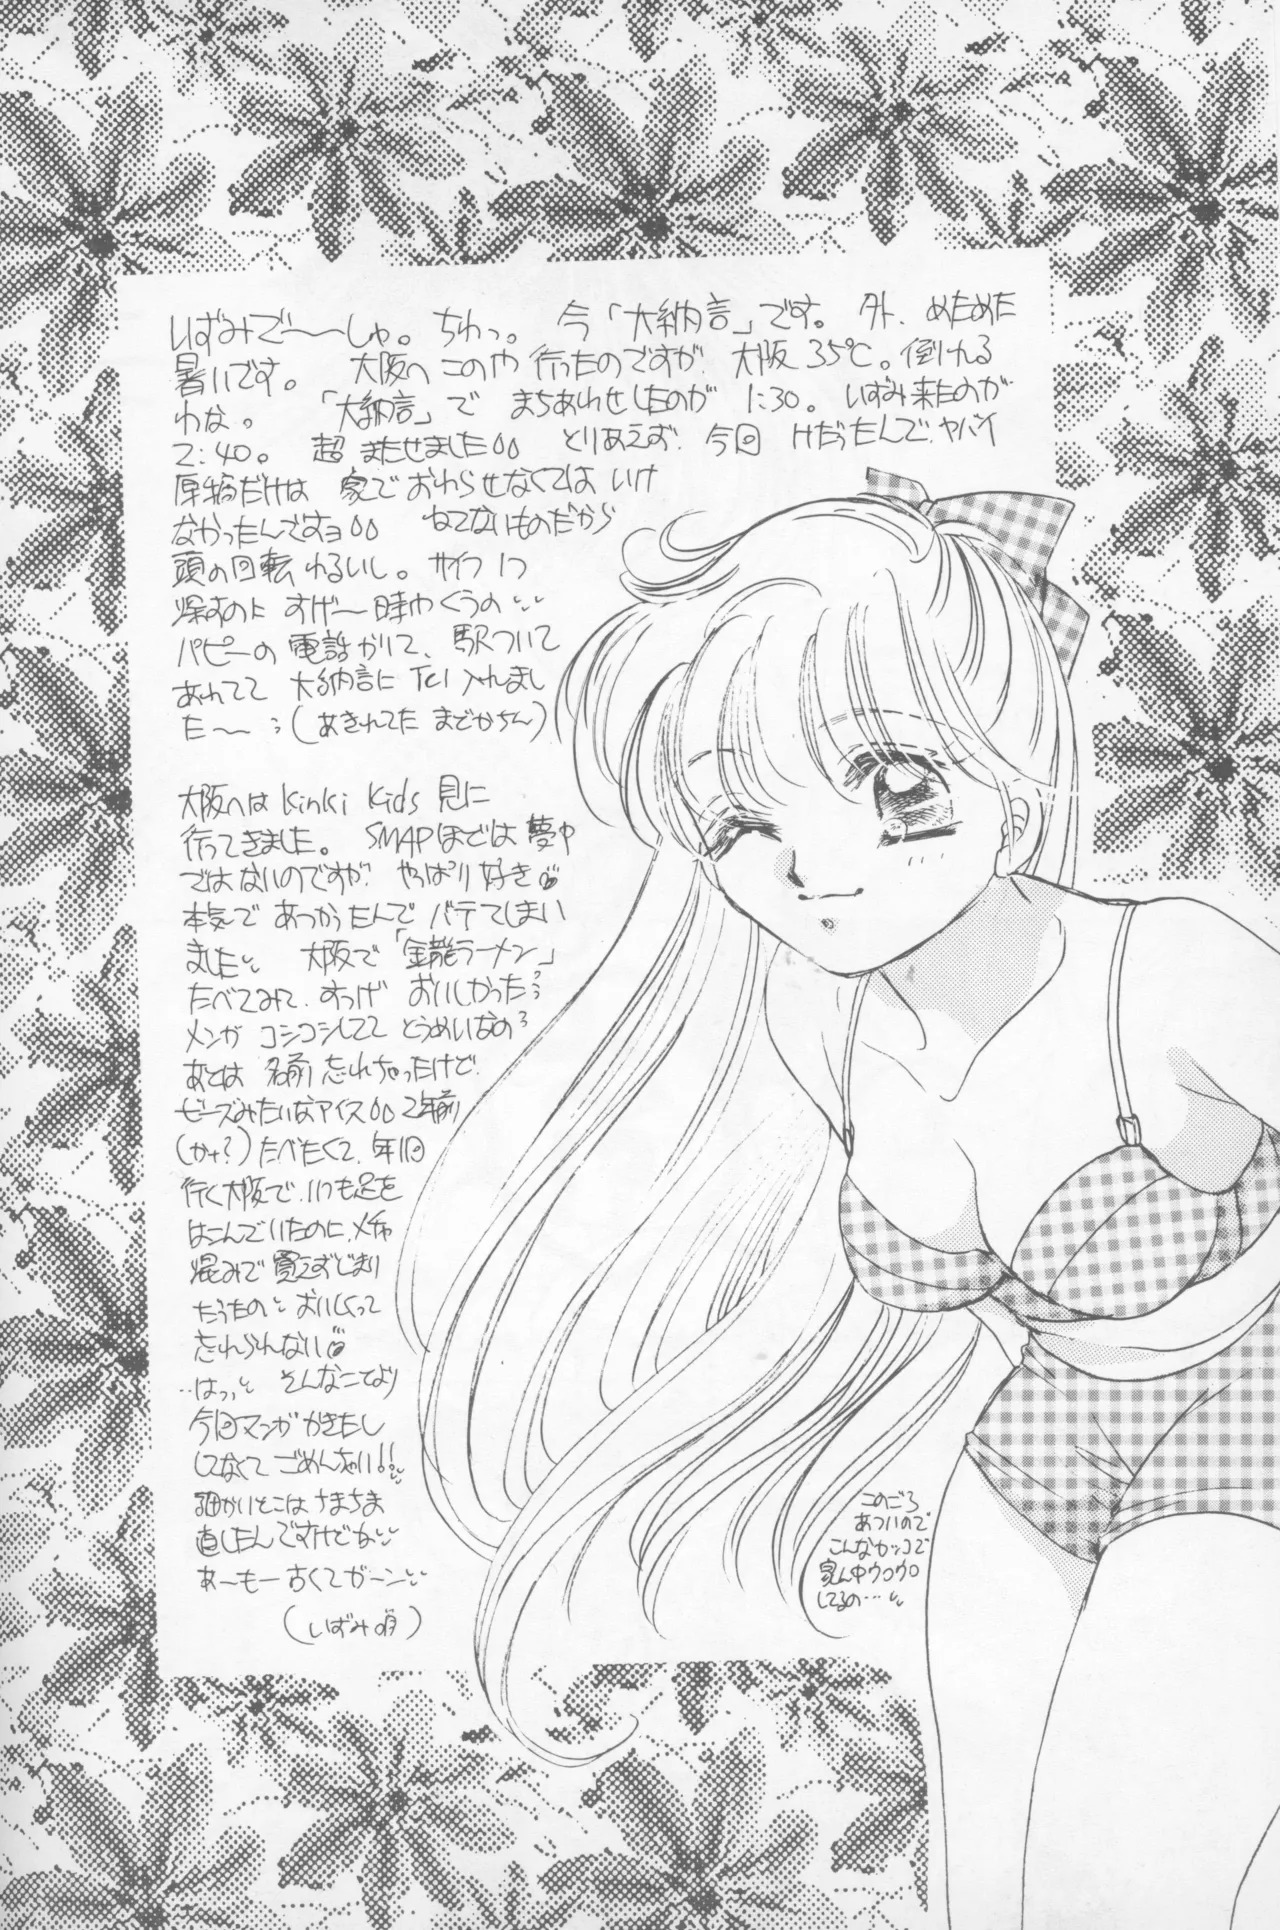 いずみで〜〜しゅ。 ちわっ。 今「大納言」です。 外、めためた
暑いです。 大阪へ このや 行ったのですが、大阪35℃。倒れる
わな。 「大納言」で まちあわせしたのが 1:30。いずみ来たのが
2:40。 超 またせました とりあえず、今回 だったんで、ヤバイ
原稿だけは 家で おわらせなくてはいけ
なかったんですヨ ねてないものだから
頭の回転 わるいし。サイフ1つ
帰すのに すげ〜時間くうの
パピーの 電話かりて、駅ついて
あわてて 大納言に Tel入れまし
た〜〜 (あきれてた まどかちん)
大阪へは Kinki Kids 見に
行ってきました。 SMAPほどは 夢中
ではないのですが、 やっぱり 好き
本気で あつかったんで バテてしまい
ました 大阪で「金龍ラーメン」
たべてみて、すっげ おいしかった
メンが コシコシしてて とうめいなの
あとは 名前 忘れちゃったけど、
ビーズみたいなアイス 2年前
(かナ?) たべたくて、年1回
行く大阪で、いつも足を
はこんでいたのに、メチャ
混みで 買えずじまい
だったの おいしくって
忘れらんない
…はっ、 そんなことより
今回マンガかきたし
してなくて ごめんちゃい!!
細かいとこは ちまちま
直したんですけどね
あ〜も〜古くてガーン
(いずみ明)
このごろ
あついので
こんなカッコで
家ん中ウロウロ
してるの…